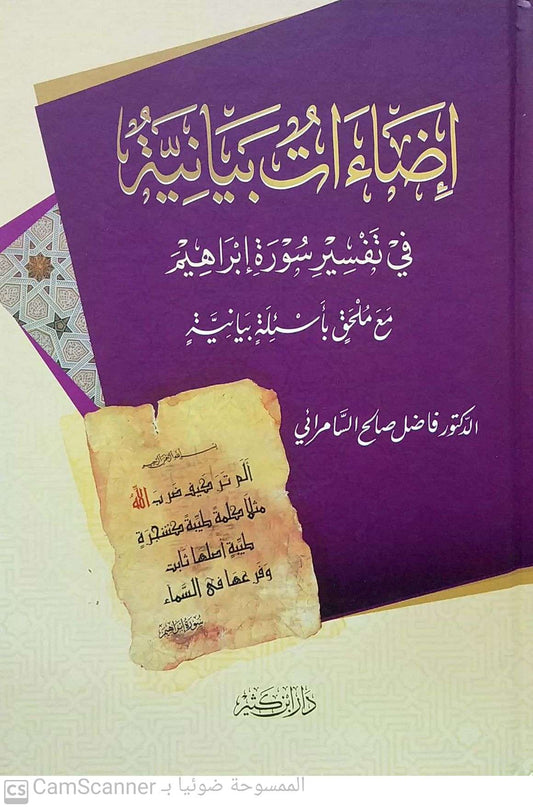 إِضَاءَاتٌ بَيَانِيَّةٌ
فِي تَفْسِيرِ سُورَةِ إِبْرَاهِيمَ
مَعَ مُلْحَقٍ بِأَسْئِلَةٍ بَيَانِيَّةٍ
الدكتور فاضل صالح السَّامرائي
بسم الله الرحمن الرحيم
أَلَم تَرَ كَيفَ ضَرَبَ اللَّهُ
مثلاً كلمةً طيّبةً كشجرةٍ
طيّبةٍ أصلها ثابت
وفرعها فى السَّماء
سُورَة إبراهيم
دَار ابْن كَثِير
CS CamScanner الممسوحة ضوئيا بـ